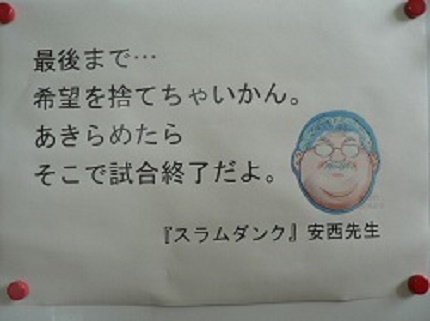 最後まで…
希望を捨てちゃいかん。
あきらめたら
そこで試合終了だよ。
『スラムダンク』安西先生